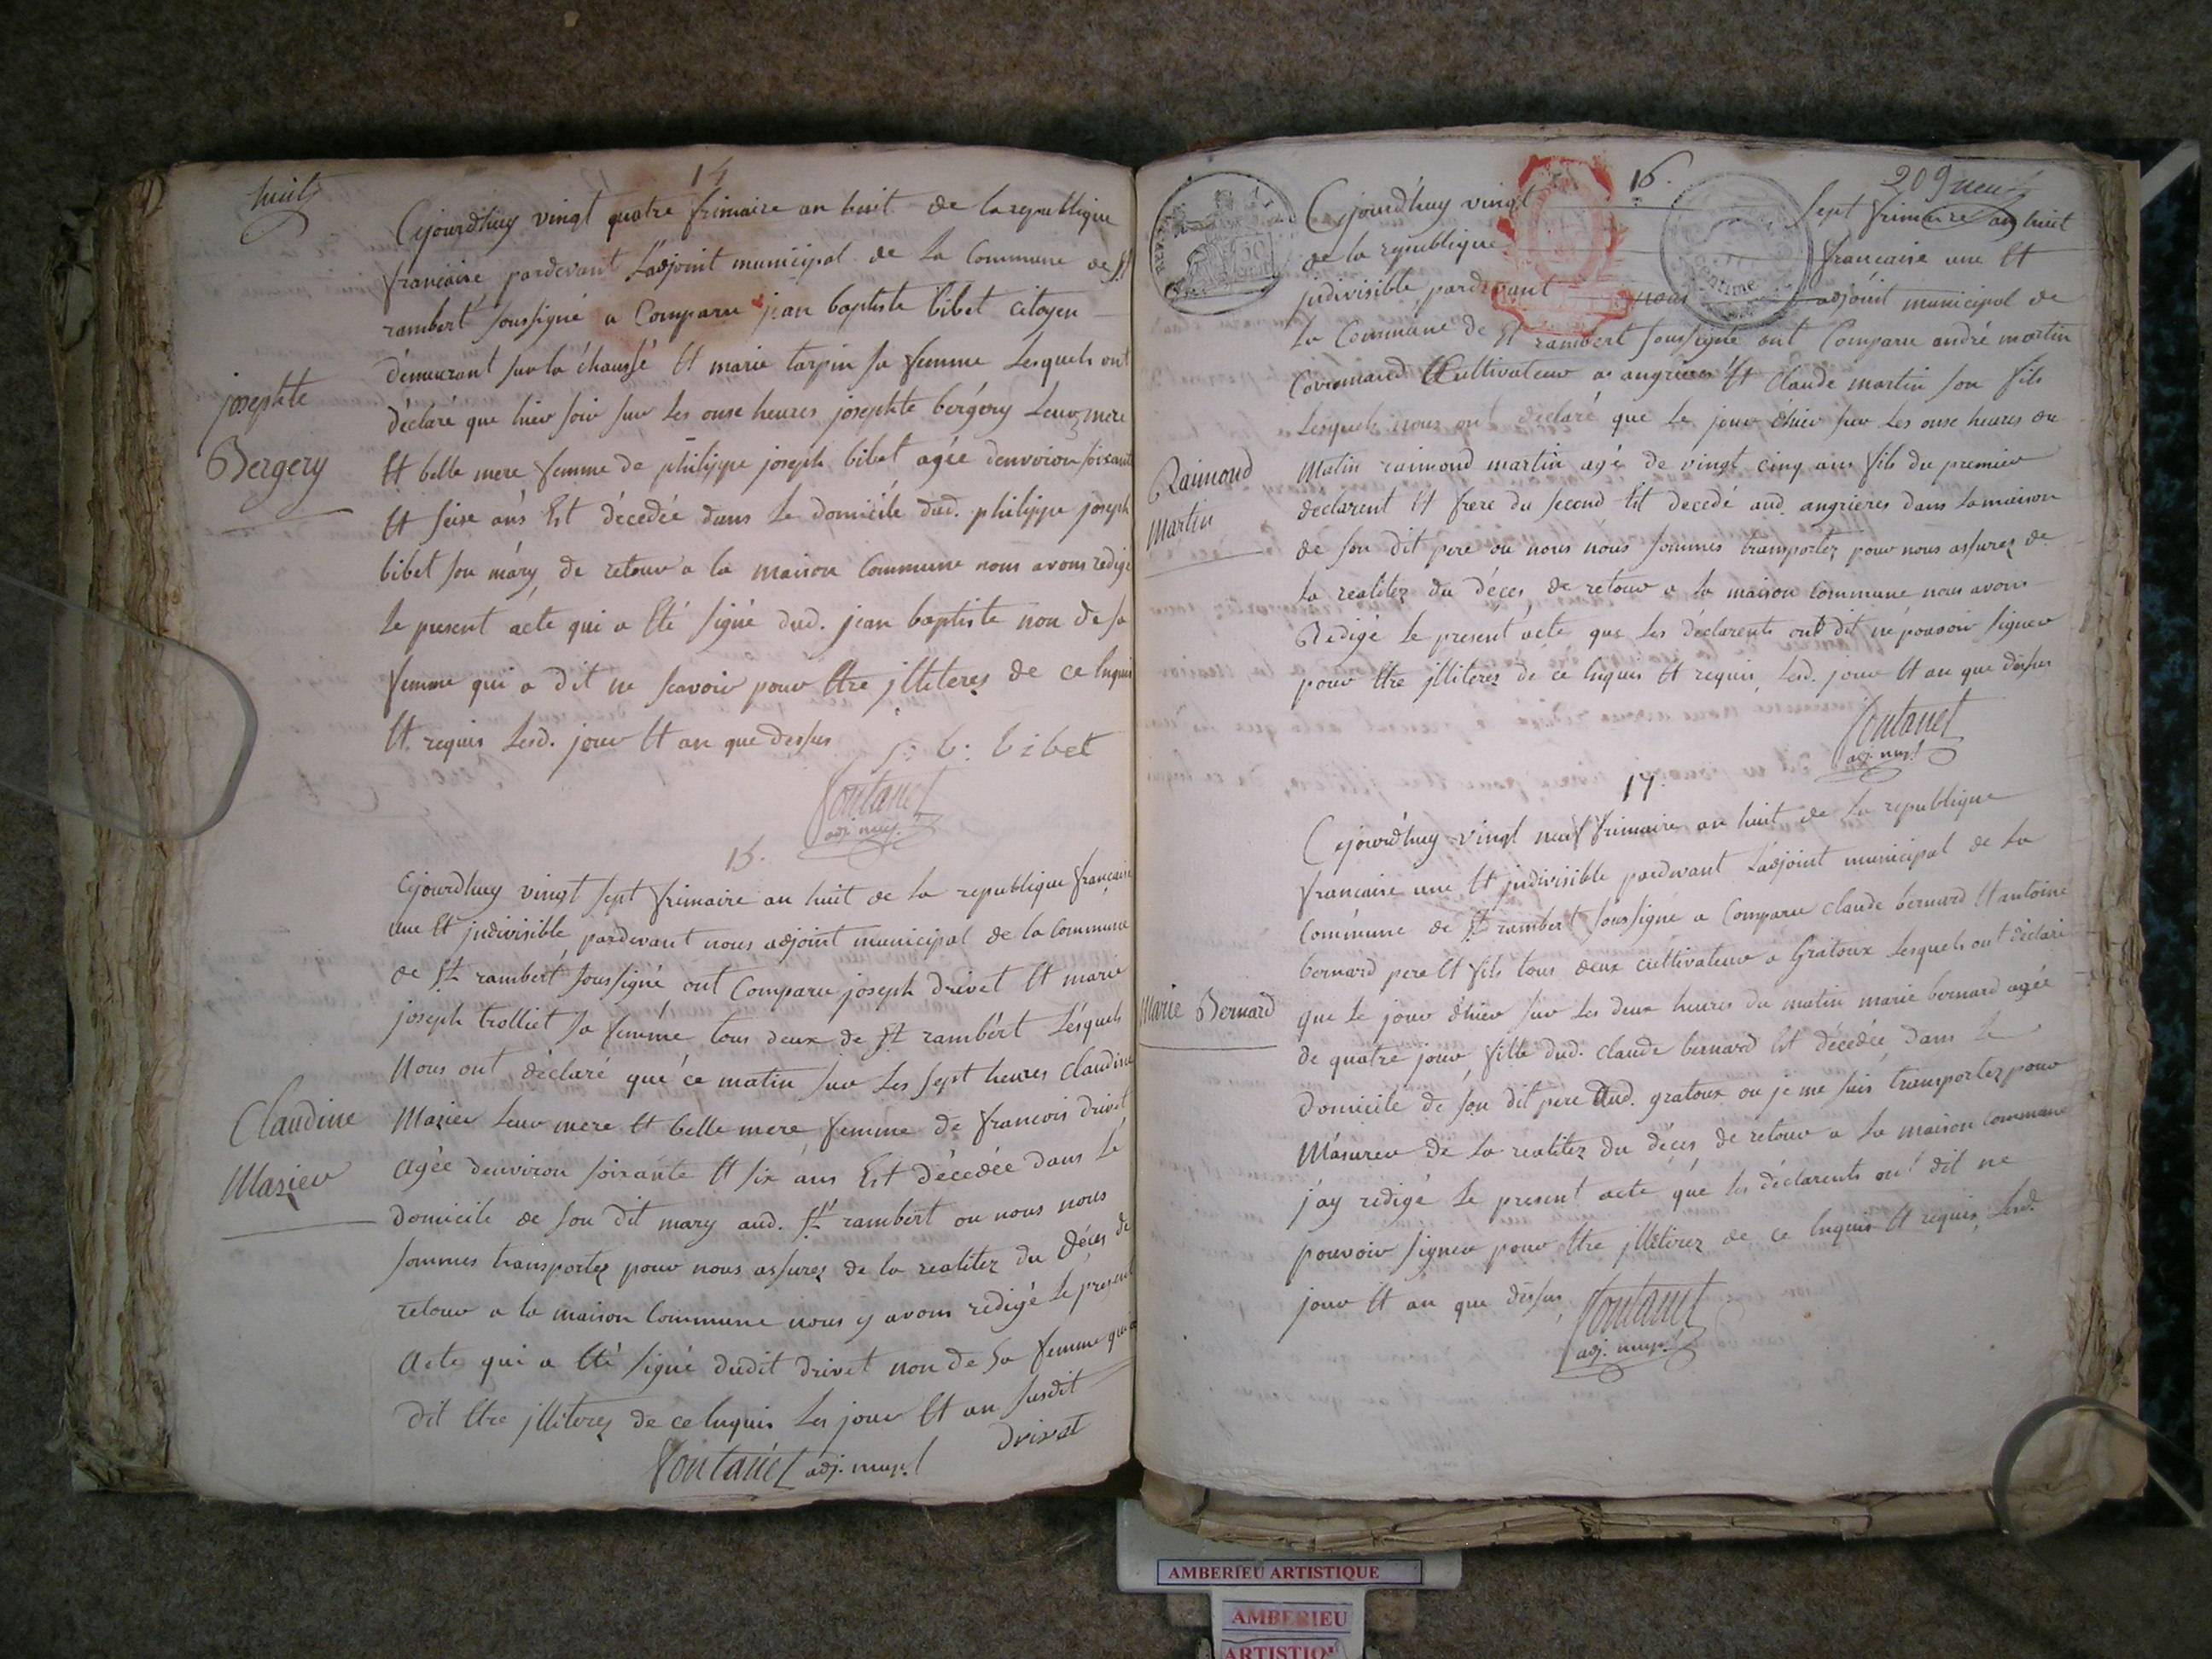 huit
14
Cejourdhuy vingt quatre frimaire an huit de la republique
francaise pardevant L'adjoint municipal de La Commune de St
rambert soussigné a Comparu jean baptiste bibet citoyen
demeurant sur la chaussé Et marie tarpin sa femme Lesquels ont
déclaré que hier soir sur Les onse heures josephte bergery Leur mere
Et belle mere femme de philippe joseph bibet agée denviron soixante
Et seise ans Est décedée dans Le domicile dud. philippe joseph
bibet son mary, de retour a la maison Commune nous avons redigé
Le present acte qui a Eté signé dud. jean baptiste non de sa
femme qui a dit ne scavoir pour Etre jlliteres de ce Enquis
Et requis Lesd. jour Et an que dessus
josephte
Bergery
j: b: bibet
Fontanel
adj. mupl
15.
Cejourdhuy vingt sept frimaire an huit de la republique francaise
une Et jndivisible pardevant nous adjoint municipal de la Commune
de St rambert soussigné ont Comparu joseph drivet Et marie
joseph trolliet sa femme tous deux de St rambert Lesquels
Nous ont déclaré que ce matin sur Les sept heures Claudine
Mazier Leur mere Et belle mere femme de francois drivet
Agée denviron soixante Et six ans Est décedée dans Le
Domicile de son dit mary aud. St rambert ou nous nous
sommes transportez pour nous assurez de la realitez du Déces de
retour a la maison Commune nous y avons redigé Le present
Acte qui a Eté signé dudit drivet non de sa femme qui a
dit Etre jlliterez de ce Enquis Les jour Et an susdit
Claudine
Mazier
drivet
Fontanel adj. mupl
209 neuf
16.
Cejourdhuy vingt sept frimaire an huit
de la republique francaise une Et
jndivisible pardevant nous adjoint municipal de
La Commune de St rambert soussigné ont Comparu andré martin
Cultivateur a angrieres Et Claude martin son fils
Lesquels nous ont déclaré que Le jour dhier sur Les onse heures du
Matin raimond martin agé de vingt cinq ans fils du premier
declarent Et frere du second Est decedé aud. angrieres dans La maison
de son dit pere ou nous nous sommes transportez pour nous assurez de
La realitez du déces, de retour a la maison Commune nous avons
Redigé Le present acte que Les déclarents ont dit ne pouvoir signer
pour Etre jlliterez de ce Enquis Et requis, Lesd. jour Et an que dessus
Raimond
Martin
Fontanel
adj. mupl
17.
Cejourdhuy vingt neuf frimaire an huit de La republique
francaise une Et jndivisible pardevant L'adjoint municipal de La
Commune de St rambert soussigné a Comparu claude bernard Et antoine
bernard pere Et fils tous deux cultivateur a Gratoux Lesquels ont déclaré
que Le jour dhier sur Les deux heures du matin marie bernard agée
de quatre jour, fille dud. claude bernard Est décedée dans Le
Domicile de son dit pere Aud. gratoux ou je me suis transportez pour
M'asurer de La realitez du déces de retour a La maison Commune
j'ay redigé Le present acte que les déclarents ont dit ne
pouvoir signer pour Etre jlliterez de ce Enquis Et requis, Lesd.
jour Et an que dessus
Marie Bernard
Fontanel
adj. mupl
AMBERIEU ARTISTIQUE
AMBERIEU
ARTISTIQU